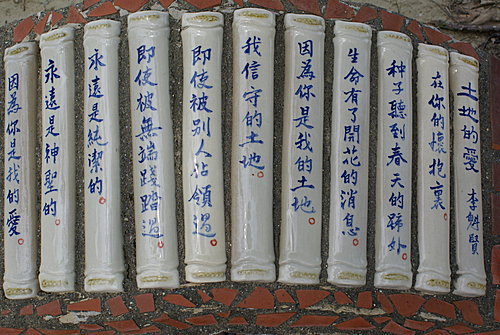 土地的愛 李魁賢
在你的懷抱裏
種子聽到春天的蹄外
生命有了開花的消息
因為你是我的土地
我信守的土地
即使被別人佔領過
即使被無端踐踏過
永遠是純潔的
永遠是神聖的
因為你是我的愛